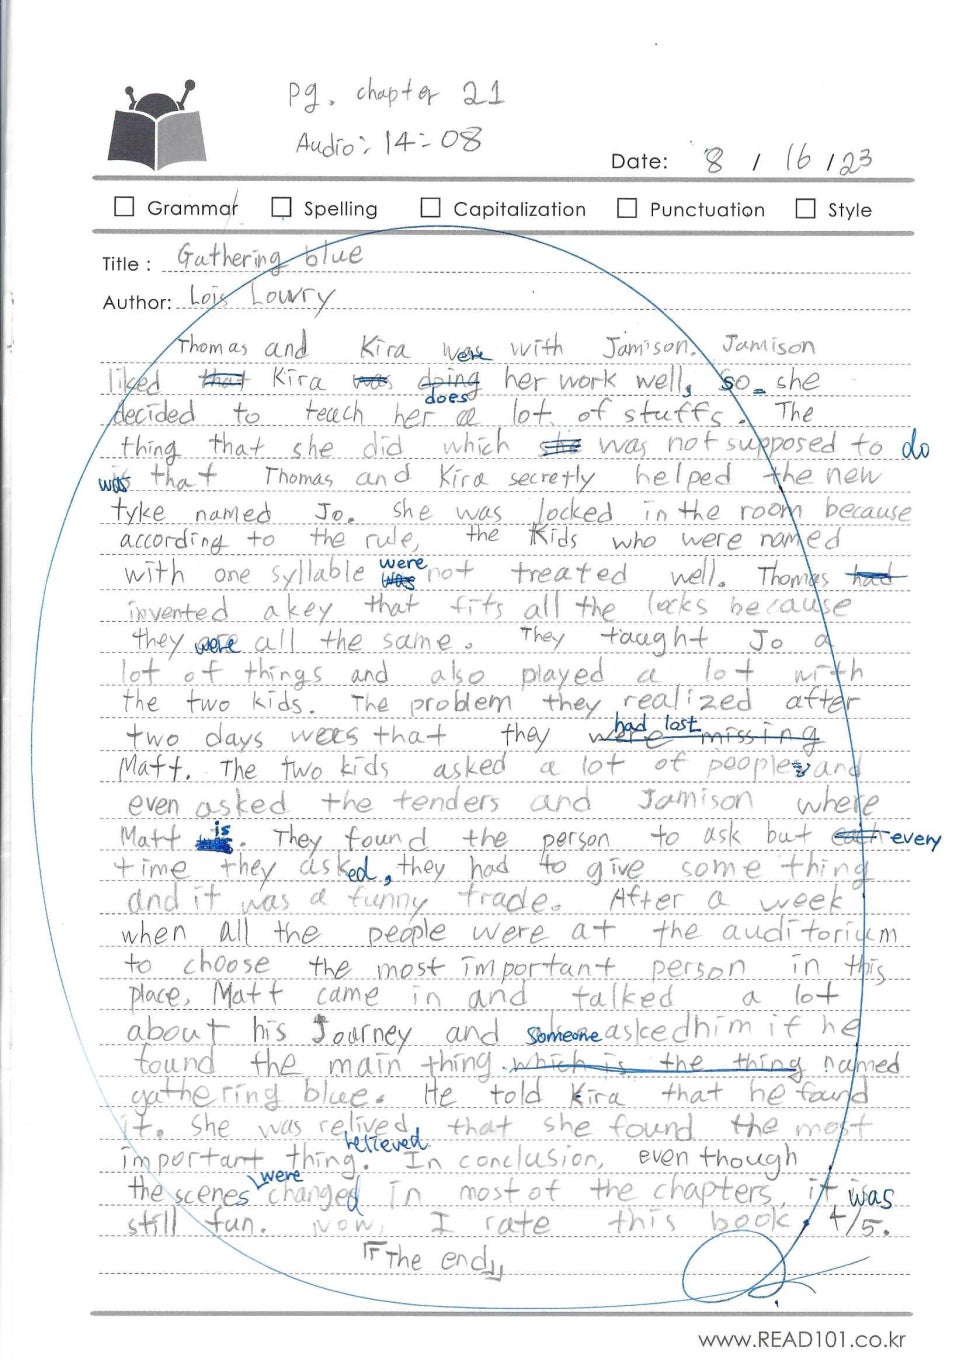 pg. chapter 21
Audio: 14:08
Date: 8 / 16 / 23
Grammar Spelling Capitalization Punctuation Style
Title : Gathering blue
Author: Lois Lowry
Thomas and Kira were with Jamison. Jamison
liked that Kira was doing her work well, so she
does
decided to teach her a lot of stuffs. The
thing that she did which she was not supposed to do
was that Thomas and Kira secretly helped the new
tyke named Jo. She was locked in the room because
according to the rule, the kids who were named
were
with one syllable was not treated well. Thomas had
invented a key that fits all the locks because
they were all the same. They taught Jo a
lot of things and also played a lot with
the two kids. The problem they realized after
had lost
two days was that they were missing
Matt. The two kids asked a lot of people and
even asked the tenders and Jamison where
is
Matt . They found the person to ask but each every
time they asked, they had to give some thing
and it was a funny trade. After a week
when all the people were at the auditorium
to choose the most important person in this
place, Matt came in and talked a lot
about his Journey and someone asked him if he
found the main thing which is the thing named
gathering blue. He told Kira that he found
it. She was relived that she found the most
relieved
important thing. In conclusion, even though
were
the scenes changed in most of the chapters, it is was
still fun. Now, I rate this book 4/5.
『The end』
www.READ101.co.kr